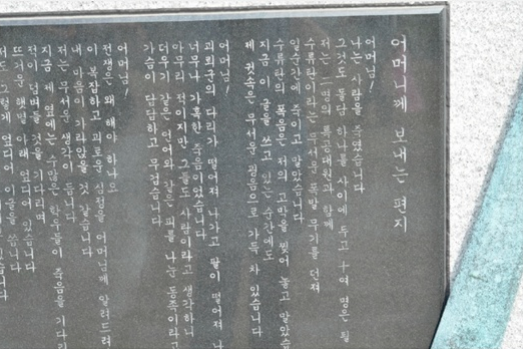 어머니께 보내는 편지
어머님!
나는 사람을 죽였습니다
그것도 돌담 하나를 사이에 두고 十여 명은 될
저는 二명의 특공대원과 함께
수류탄이라는 무서운 폭발 무기를 던져
일순간에 죽이고 말았습니다
수류탄의 폭음은 저의 고막을 찢어 놓고 말았습
지금 이 글을 쓰고 있는 순간에도
제 귓속은 무서운 굉음으로 가득 차 있습니다
어머님!
괴뢰군의 다리가 떨어져 나가고 팔이 떨어져 나
너무나 가혹한 죽음이었습니다
아무리 적이지만 그들도 사람이라고 생각하니
더우기 같은 언어와 같은 피를 나눈 동족이라고
가슴이 답답하고 무겁습니다
어머님!
전쟁은 왜 해야 하나요
이 복잡하고 괴로운 심정을 어머님께 알려드려
내 마음이 가라앉을 것 같습니다
저는 무서운 생각이 듭니다
지금 제 옆에는 수많은 학우들이 죽음을 기다리
적이 덤벼들 것을 기다리며
뜨거운 햇빛 아래 엎디어 있습니다
저도 그렇게 엎디어 이 글을 씁니다